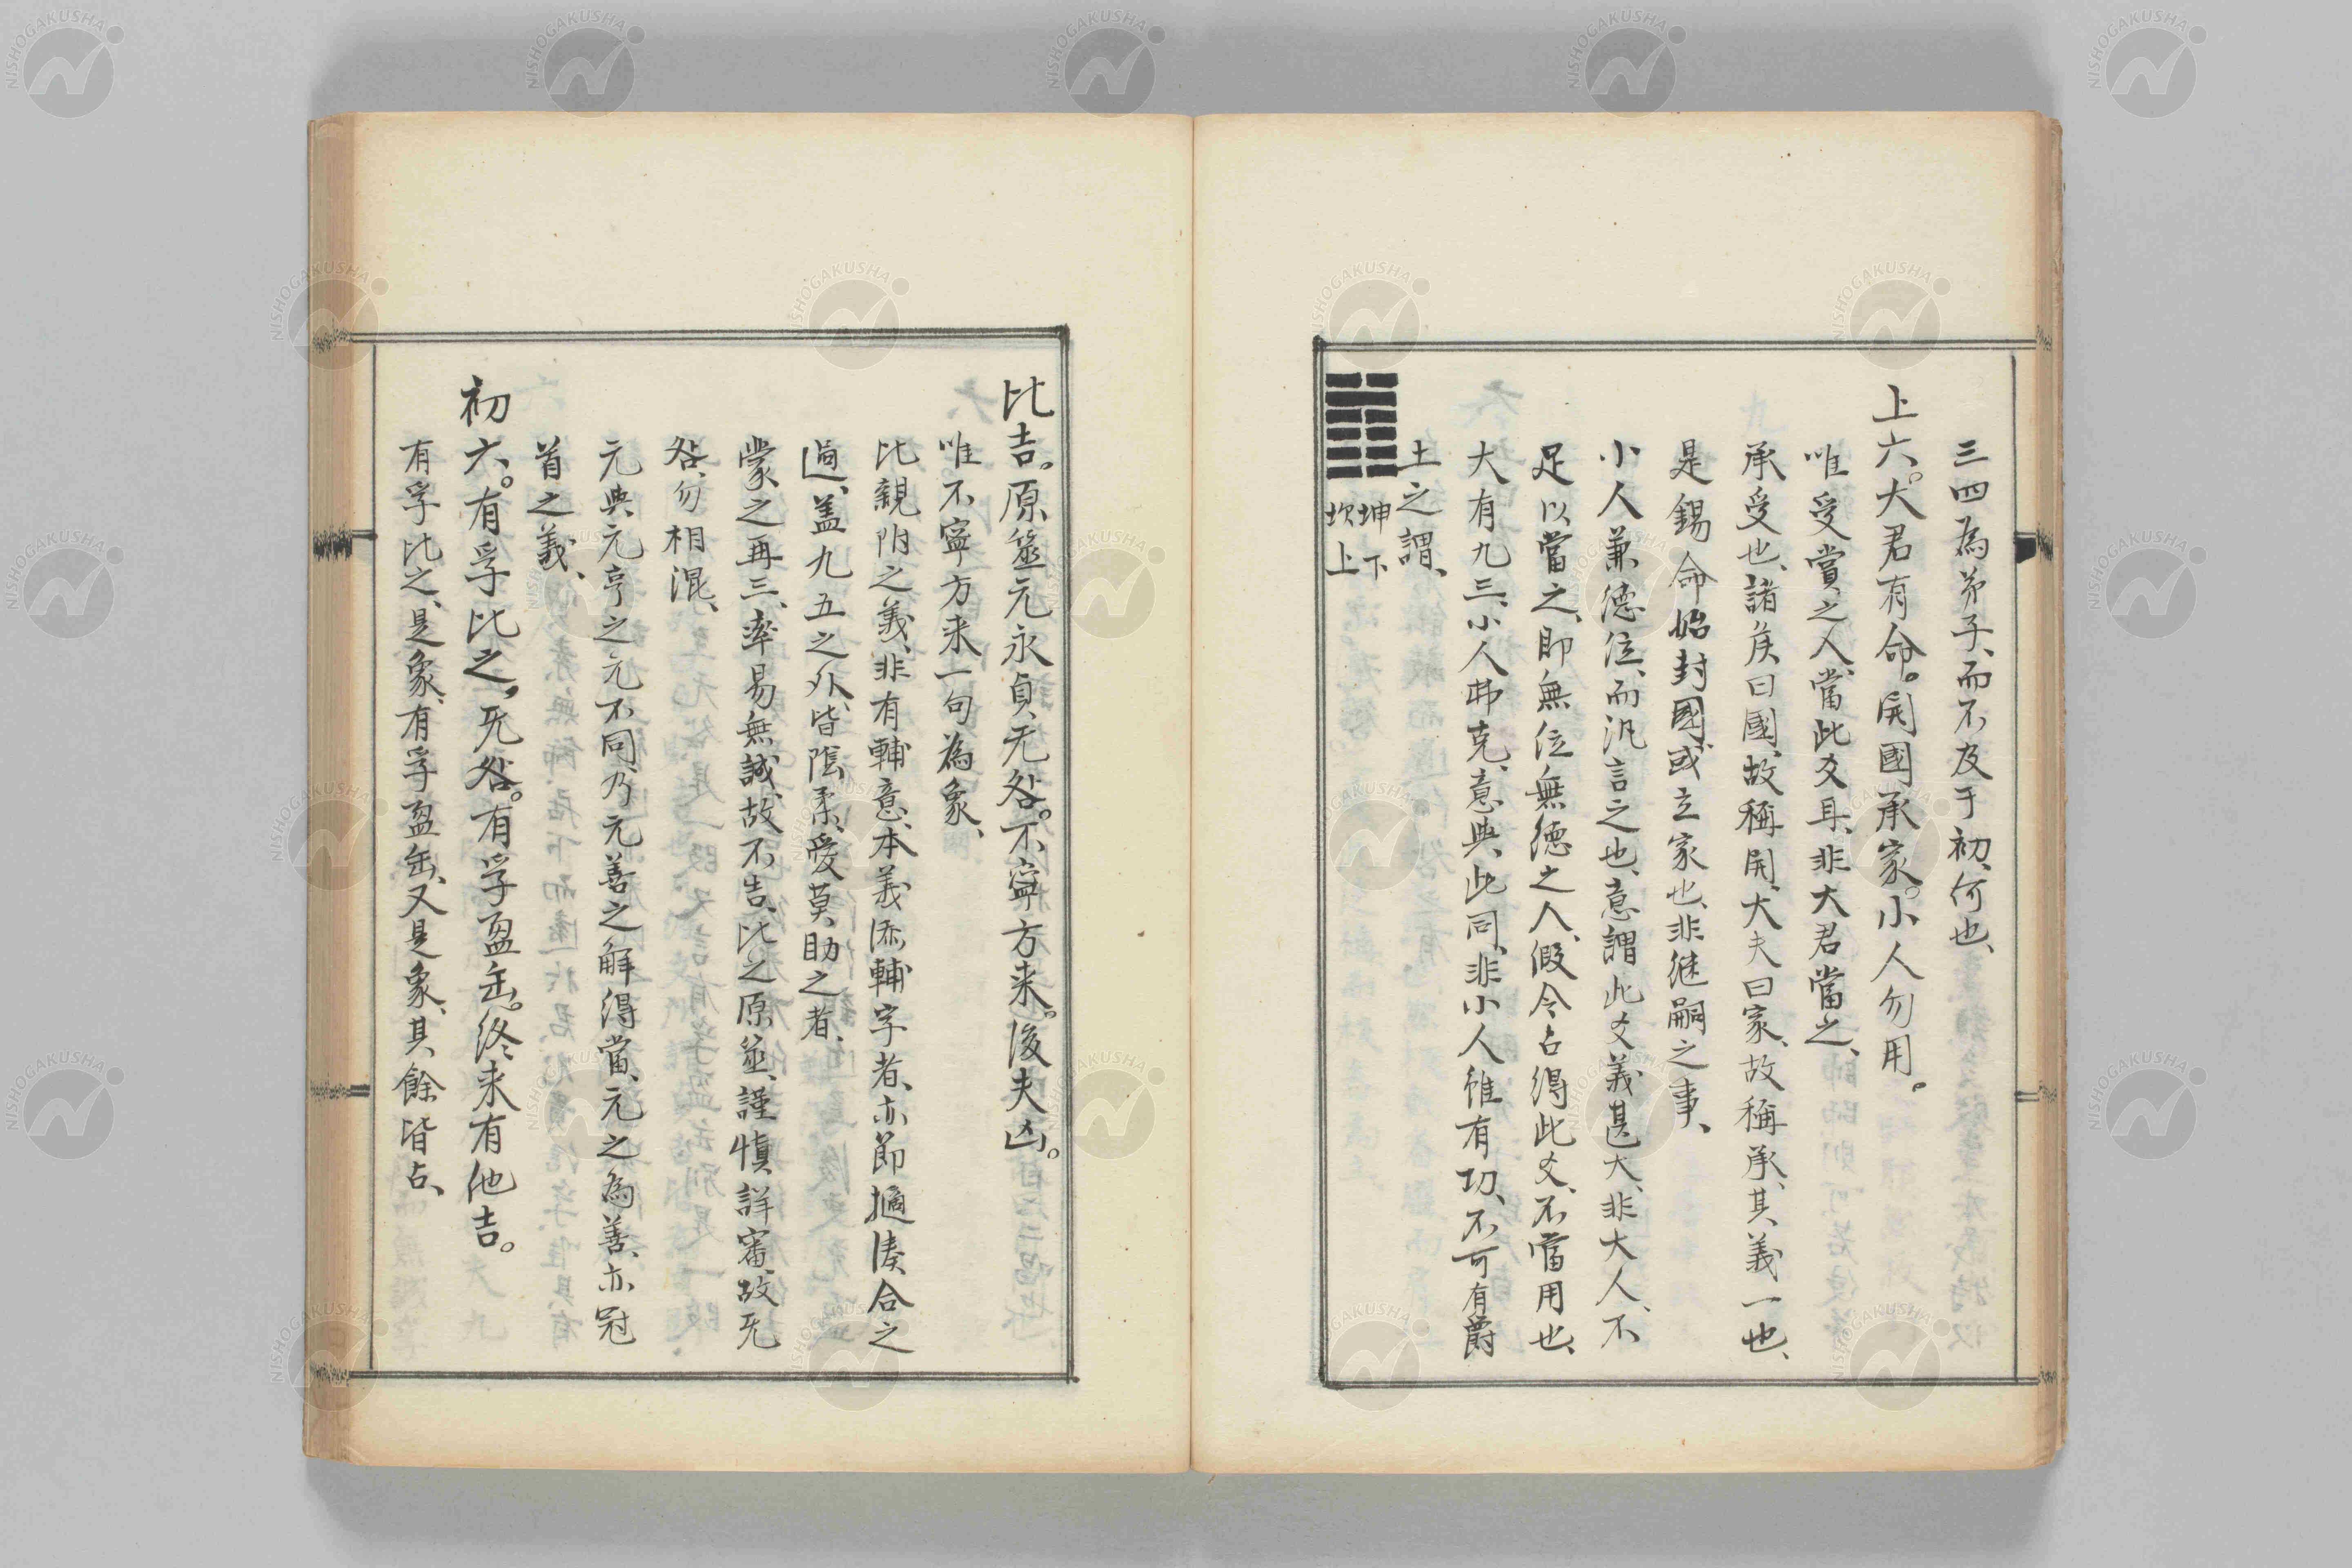 三四為弟子、而不及于初、何也、
上六。大君有命。開國承家。小人勿用。
唯受賞之人、當此爻耳、非大君當之、
承受也、諸矦曰國、故稱開、大夫曰家、故稱承、其義一也、
是錫命始封國或立家也、非継嗣之事、
小人兼德位、而汎言之也、意謂此爻義甚大、非大人、不
足以當之、即無位無德之人、假令占得此爻、不當用也、
大有九三、小人弗克、意與此同、非小人雖有功、不可有爵
土之謂、
坤下
坎上
比吉。原筮元永貞、无咎。不寧方来。後夫凶。
唯不寧方来一句為象、
比親附之義、非有輔意、本義添輔字者、亦節擿湊合之
過、盖九五之外、皆陰柔、愛莫助之者、
蒙之再三、率易無誠、故不吉、比之原筮、謹慎詳審、故无
咎、勿相混、
元與元亨之元不同、乃元善之解得當、元之為善、亦冠
首之義、
初六。有孚比之。无咎。有孚盈缶。終来有他吉。
有孚比之、是象、有孚盈缶、又是象、其餘皆占、
NISHOGAKUSHA